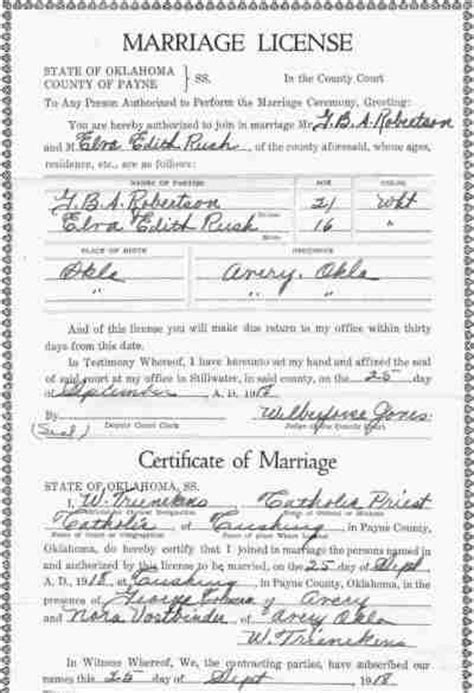 MARRIAGE LICENSE
STATE OF OKLAHOMA
COUNTY OF PAYNE } SS. In the County Court
To Any Person Authorized to Perform the Marriage Ceremony, Greeting:
You are hereby authorized to join in marriage Mr. J.B.A. Robertson
and M Elva Edith Rush, of the county aforesaid, whose ages,
residence, etc., are as follows:
NAMES OF PARTIES AGE COLOR
J.B.A. Robertson 21 Wht
Elva Edith Rush 16 "
PLACE OF BIRTH RESIDENCE
Okla Avery, Okla
" " "
And of this license you will make due return to my office within thirty
days from this date.
In Testimony Whereof, I have hereunto set my hand and affixed the seal
of said court at my office in Stillwater, in said county, on the 25 day
of September A. D. 1918
By Wilberforce Jones
(Seal) Deputy Court Clerk Judge of the County Court
Certificate of Marriage
STATE OF OKLAHOMA, SS.
I, W. Trienekens Catholic Priest
Catholic at Cushing, in Payne County,
Oklahoma, do hereby certify that I joined in marriage the persons named in
and authorized by this license to be married, on the 25 day of Sept
A. D., 1918, at Cushing, in Payne County, Oklahoma, in the
presence of George of Avery
and Nora of Avery Okla
W. Trienekens
In Witness Whereof, We, the contracting parties, have subscribed our
names this 25 day of Sept 1918